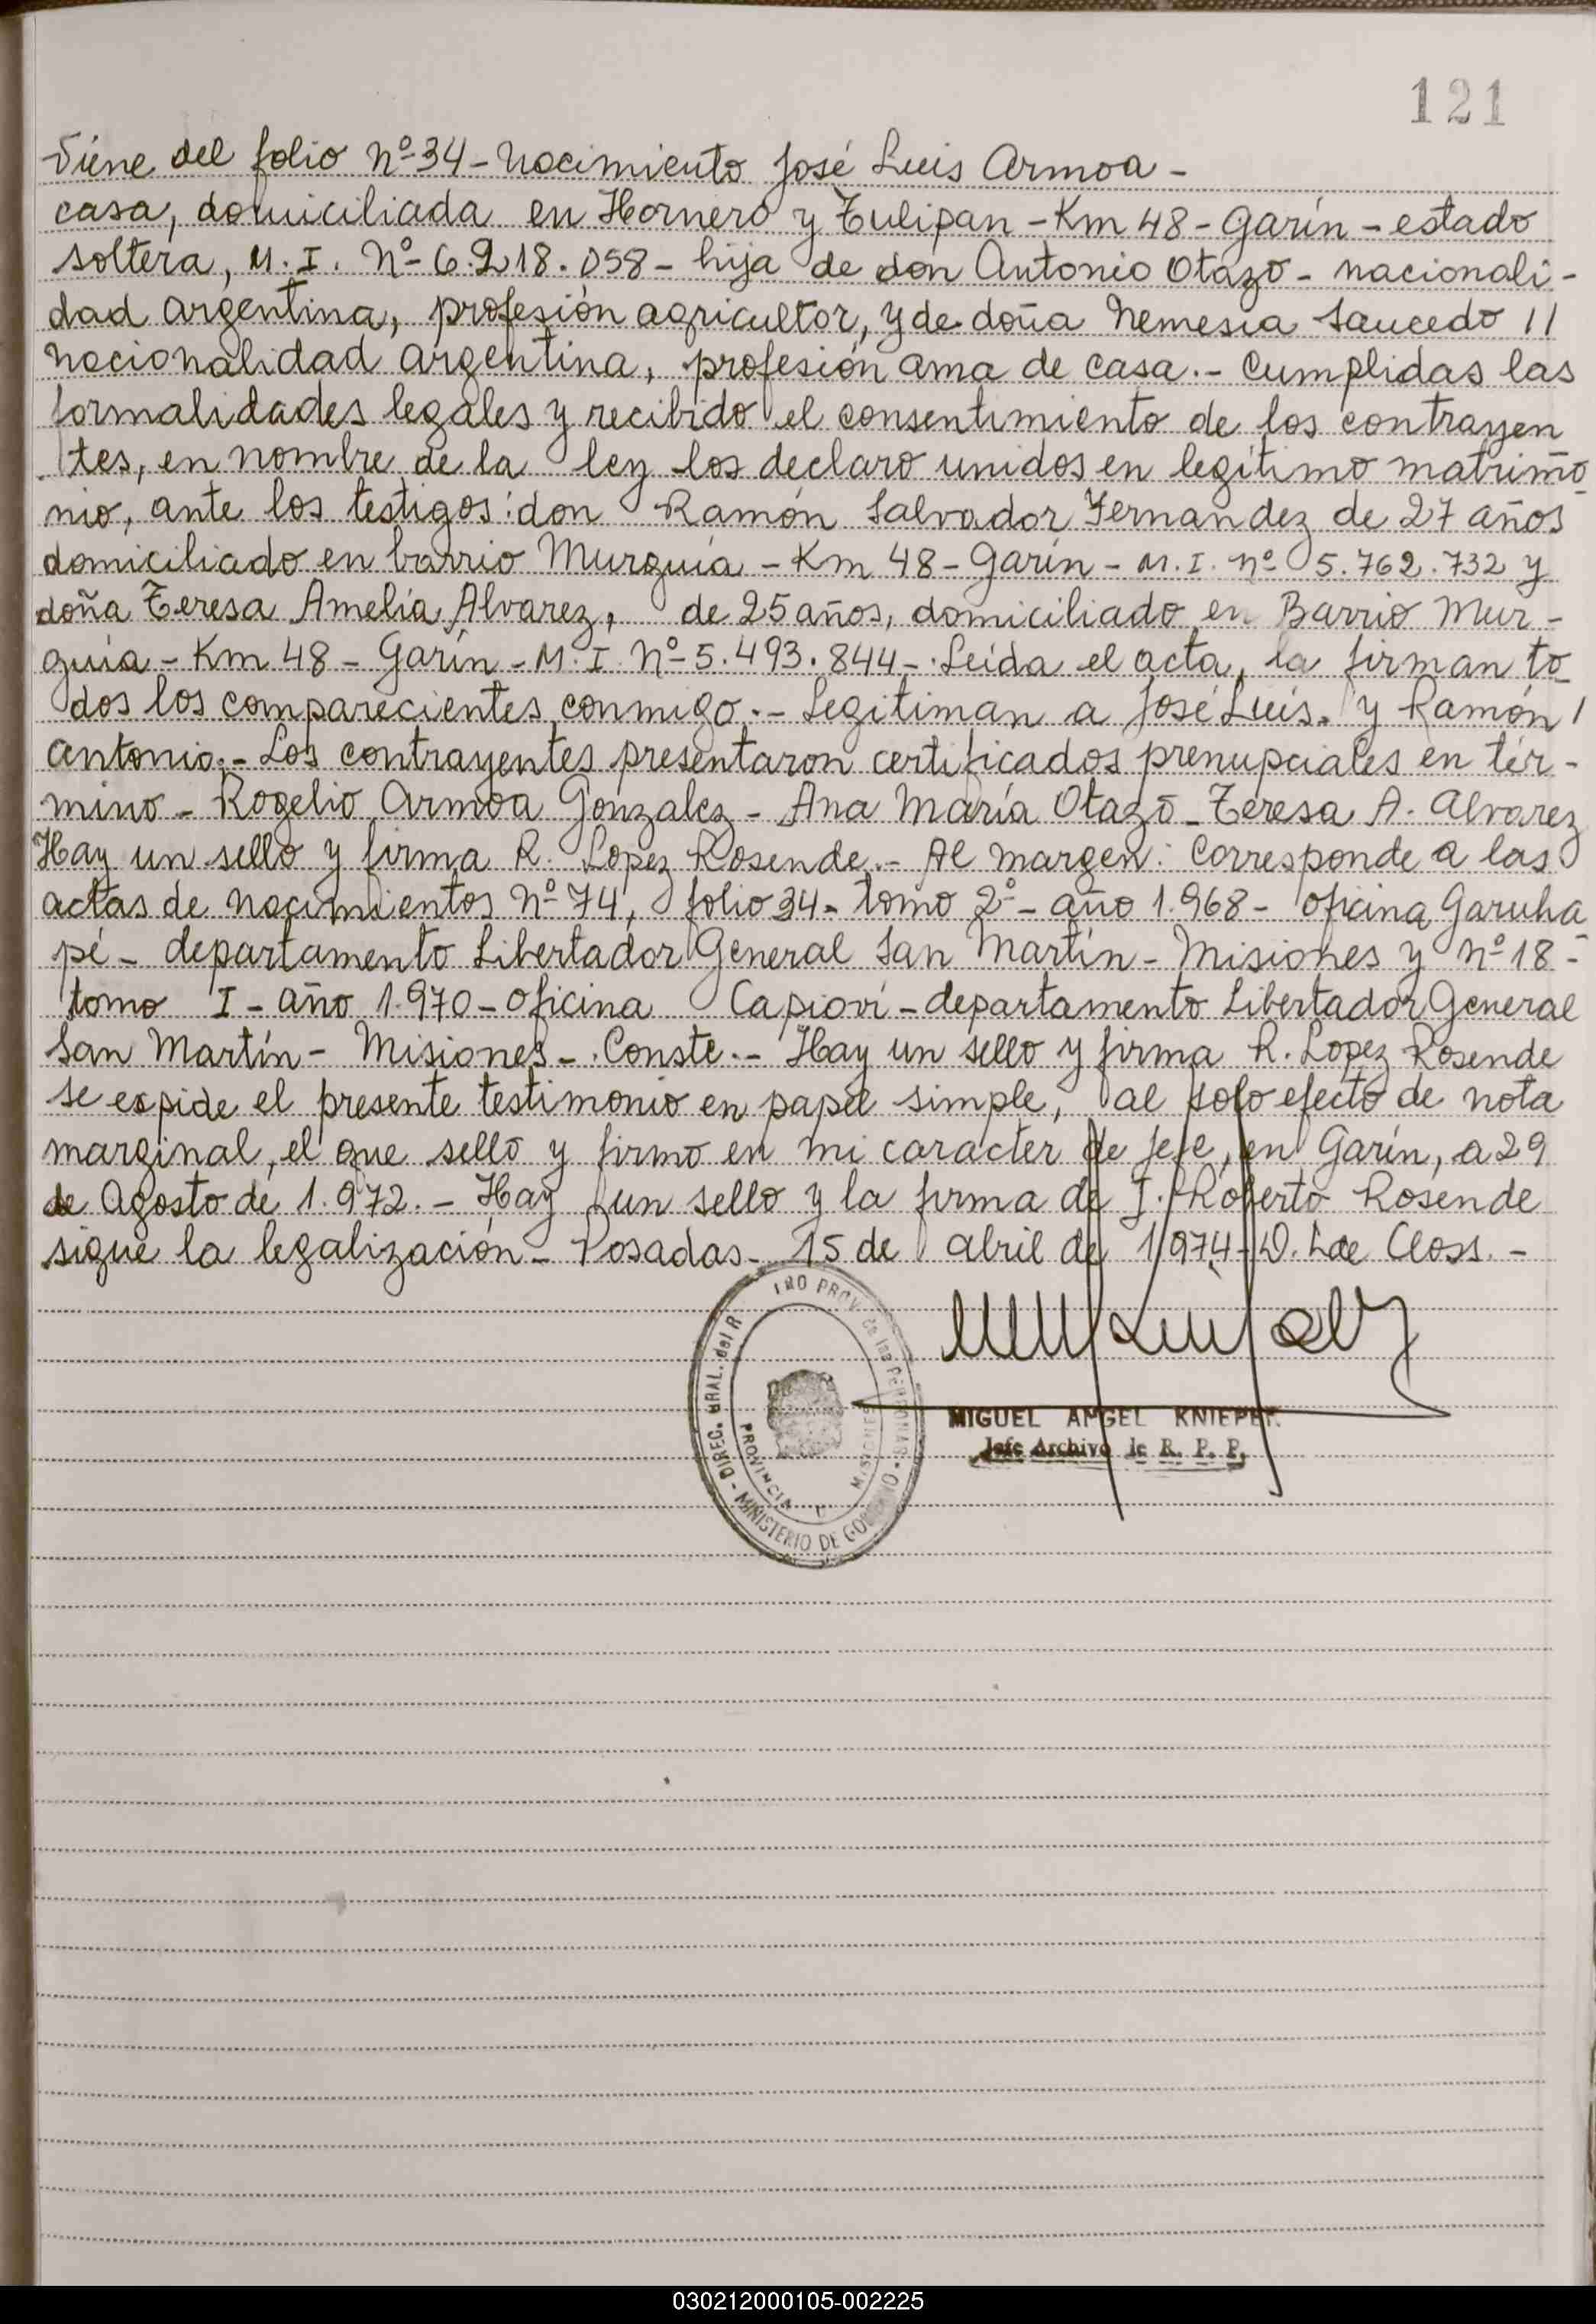 121
Viene del folio Nº 34 - Nacimiento José Luis Armoa -
casa, domiciliada en Hornero y Tulipan - Km 48 - Garín - estado
soltera, M. I. Nº 6.218.058 - hija de don Antonio Otazo - nacionali-
dad argentina, profesión agricultor, y de doña Nemesia Saucedo //
nacionalidad argentina, profesión ama de casa.- Cumplidas las
formalidades legales y recibido el consentimiento de los contrayen
tes, en nombre de la ley los declaro unidos en legítimo matrimo
nio, ante los testigos: don Ramón Salvador Fernandez de 27 años
domiciliado en barrio Murguía - Km 48 - Garín - M. I. nº 5.762.732 y
doña Teresa Amelia Alvarez, de 25 años, domiciliado en Barrio Mur-
guía - Km 48 - Garín - M. I. Nº 5.493.844 -. Leída el acta, la firman to
dos los comparecientes conmigo.- Legitiman a José Luis. y Ramón /
Antonio.- Los contrayentes presentaron certificados prenupciales en tér-
mino - Rogelio Armoa Gonzalez - Ana María Otazo - Teresa A. Alvarez
Hay un sello y firma R. Lopez Rosende.- Al margen: Corresponde a las
actas de nacimientos Nº 74, folio 34 - tomo 2º - año 1.968 - oficina Garuha
pé - departamento Libertador General San Martín - Misiones y nº 18 -
tomo I - año 1.970 - oficina Capioví - departamento Libertador General
San Martín - Misiones -. Conste.- Hay un sello y firma R. Lopez Rosende
se expide el presente testimonio en papel simple, al solo efecto de nota
marginal, el que sello y firmo en mi caracter de jefe, en Garín, a 29
de Agosto de 1.972. - Hay un sello y la firma de J. Roberto Rosende
sigue la legalización - Posadas - 15 de abril de 1974 - D. L de Closs. -
DIREC. GRAL. del R
PROV. de las PERSONAS - MINISTERIO DE GOBIERNO
PROVINCIA MISIONES
MIGUEL ANGEL
Jefe Archivo de R. P. P.
030212000105-002225